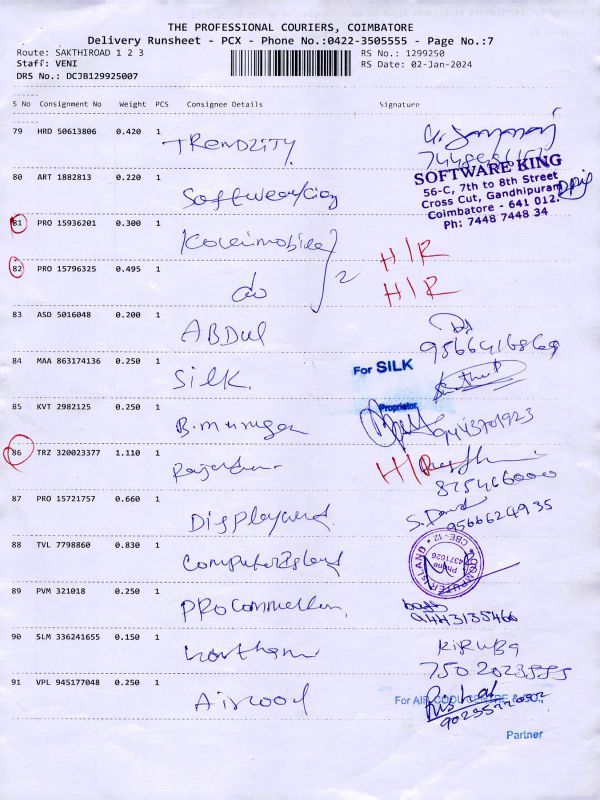 THE PROFESSIONAL COURIERS, COIMBATORE
Delivery Runsheet - PCX - Phone No.:0422-3505555 - Page No.:7
Route: SAKTHIROAD 1 2 3 RS No.: 1299250
Staff: VENI RS Date: 02-Jan-2024
DRS No.: DCJB129925007
S No Consignment No Weight PCS Consignee Details Signature
79 HRD 50613806 0.420 1 TRENDZITY
80 ART 1882813 0.220 1
SOFTWARE KING
56-C, 7th to 8th Street
Cross Cut, Gandhipuram
Coimbatore - 641 012.
Ph: 7448 7448 34
81 PRO 15936201 0.300 1 H/R
82 PRO 15796325 0.495 1 do 2 H/R
83 ASD 5016048 0.200 1 ABDUL
9566416869
84 MAA 863174136 0.250 1 Silk.
For SILK
Proprietor
85 KVT 2982125 0.250 1 B. murugan
86 TRZ 320023377 1.110 1 H/R
87 PRO 15721757 0.660 1
9566624935
88 TVL 7798860 0.830 1 Computer Island
COMPUTER ISLAND
CBE-12
Phone
4371626
89 PVM 321018 0.250 1
9443135466
90 SLM 336241655 0.150 1
KIRUBA
91 VPL 945177048 0.250 1 Aircool
For AIR COOL CENTRE & CO.,
Partner